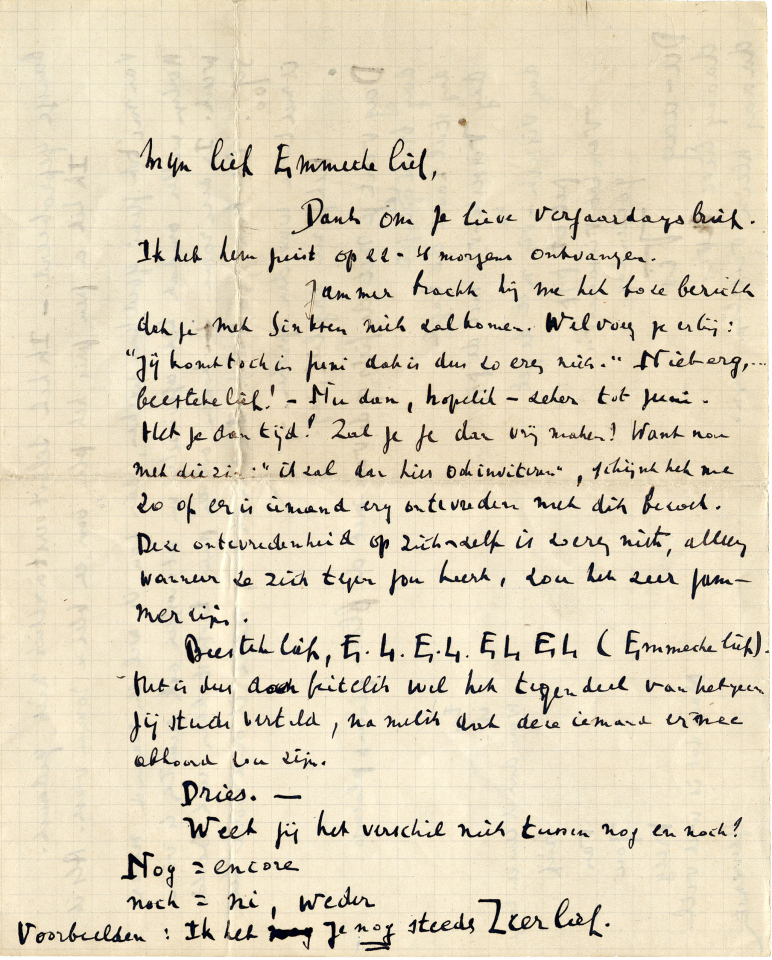 Mijn lief Emmeke lief,
Dank om je lieve verjaardagsbrief.
Ik heb hem juist op 22 - 's morgens ontvangen.
Jammer bracht hij me het boze bericht
dat je met Sinksen niet zal komen. Wel voeg je erbij:
"Jij komt toch in juni dat is dus zo erg niet." Niet erg,...
beesteke lief! - Nu dan, hopelik - zeker tot juni.
Heb je dan tijd! Zal je je dan vrij maken! Want nou
met die zin: "ik zal dan hies ook inviteren", schijnt het me
zo op er is iemand erg ontevreden met dit bezoek.
Deze ontevredenheid op zich-zelf is zo erg niet, alleen
wanneer ze zich tegen jou keert, zou het zeer jam-
mer zijn.
Beesteke lief, E.L. E.L. EL EL (Emmeke lief).
Het is dus feitelik wel het tegendeel van hetgeen
jij steeds verteld, namelik dat deze iemand ermee
akkoord zou zijn.
Dries. —
Weet jij het verschil niet tussen nog en noch?
Nog = encore
noch = ni, weder
Voorbeelden : Ik heb je nog steeds Zeer lief.